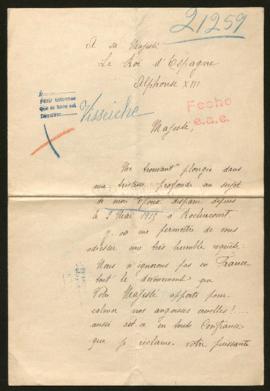 21259
A sa Majesté
Le Roi d'Espagne
Alphonse XIII
Visseiche
Fecho
Majesté,
Me trouvant plongée dans
ma tristesse profonde au sujet
de mon époux disparu depuis
le 9 Mai 1915 à
je me permettre de vous
adresser une très humble requête
Nous n'ignorons pas en France
tout le dévouement que
Votre Majesté apporte pour
calmer nos angoisses cruelles!...
aussi est-ce en toute confiance
que je réclame votre puissante